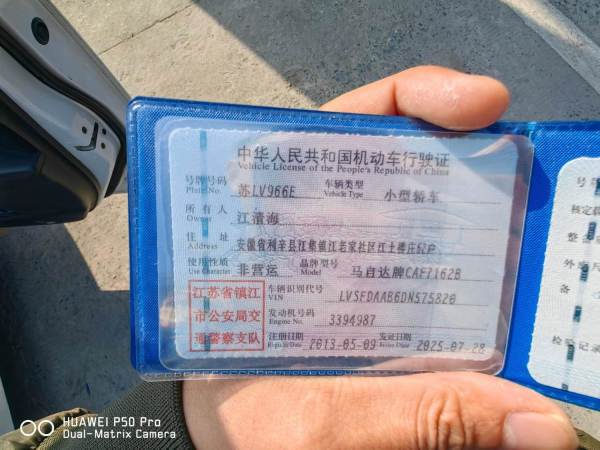 中华人民共和国机动车行驶证
Vehicle License of the People's Republic of China
号牌号码 Plate No. 苏LV966E 车辆类型 Vehicle Type 小型轿车
所有人 Owner 江清海
住址 Address 安徽省利辛县江集镇江老家社区江土楼庄62户
使用性质 Use Character 非营运 品牌型号 Model 马自达牌CAF7162B
江苏省镇江
市公安局交
通警察支队
车辆识别代号 VIN LVSFDAAB6DN575820
发动机号码 Engine No. 3394987
注册日期 Register Date 2013-05-09 发证日期 Issue Date 2025-07-28
号牌
核定载
整备
外廓尺
备
检验记录
HUAWEI P50 Pro
Dual-Matrix Camera